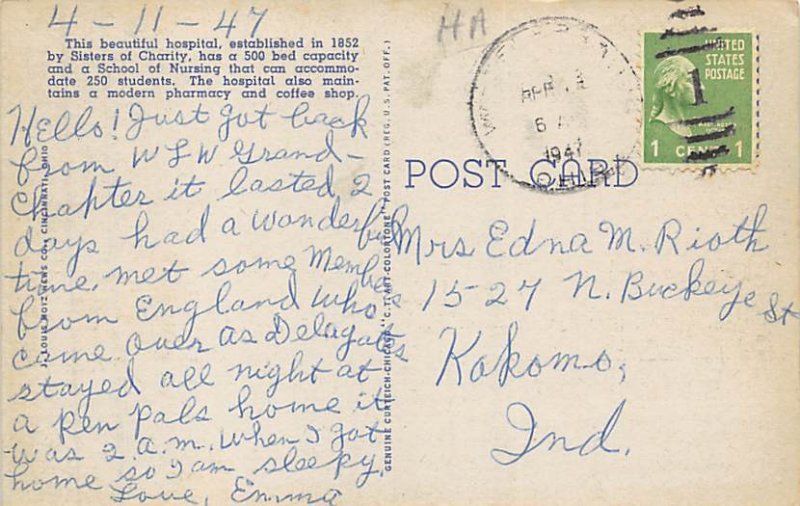 4-11-47
HA
This beautiful hospital, established in 1852
by Sisters of Charity, has a 500 bed capacity
and a School of Nursing that can accommo-
date 250 students. The hospital also main-
tains a modern pharmacy and coffee shop.
Hello! Just got back
from WLW Grand-
Chapter it lasted 2
days had a wonderful
time, met some Members
from England who
came over as Delagats
stayed all night at
a pen pals home it
was 2 a.m. when I got
home so I am sleepy.
Love, Emma
J. LOUIS MOTZ NEWS CO., CINCINNATI, OHIO
GENUINE CURTEICH-CHICAGO "C.T. ART-COLORTONE" POST CARD (REG. U.S. PAT. OFF.)
POST CARD
APR 12
6 A
1947
OHIO
UNITED
STATES
POSTAGE
1
1 CENT 1
Mrs Edna M. Rioth
1527 N. Buckeye St
Kokomo,
Ind.